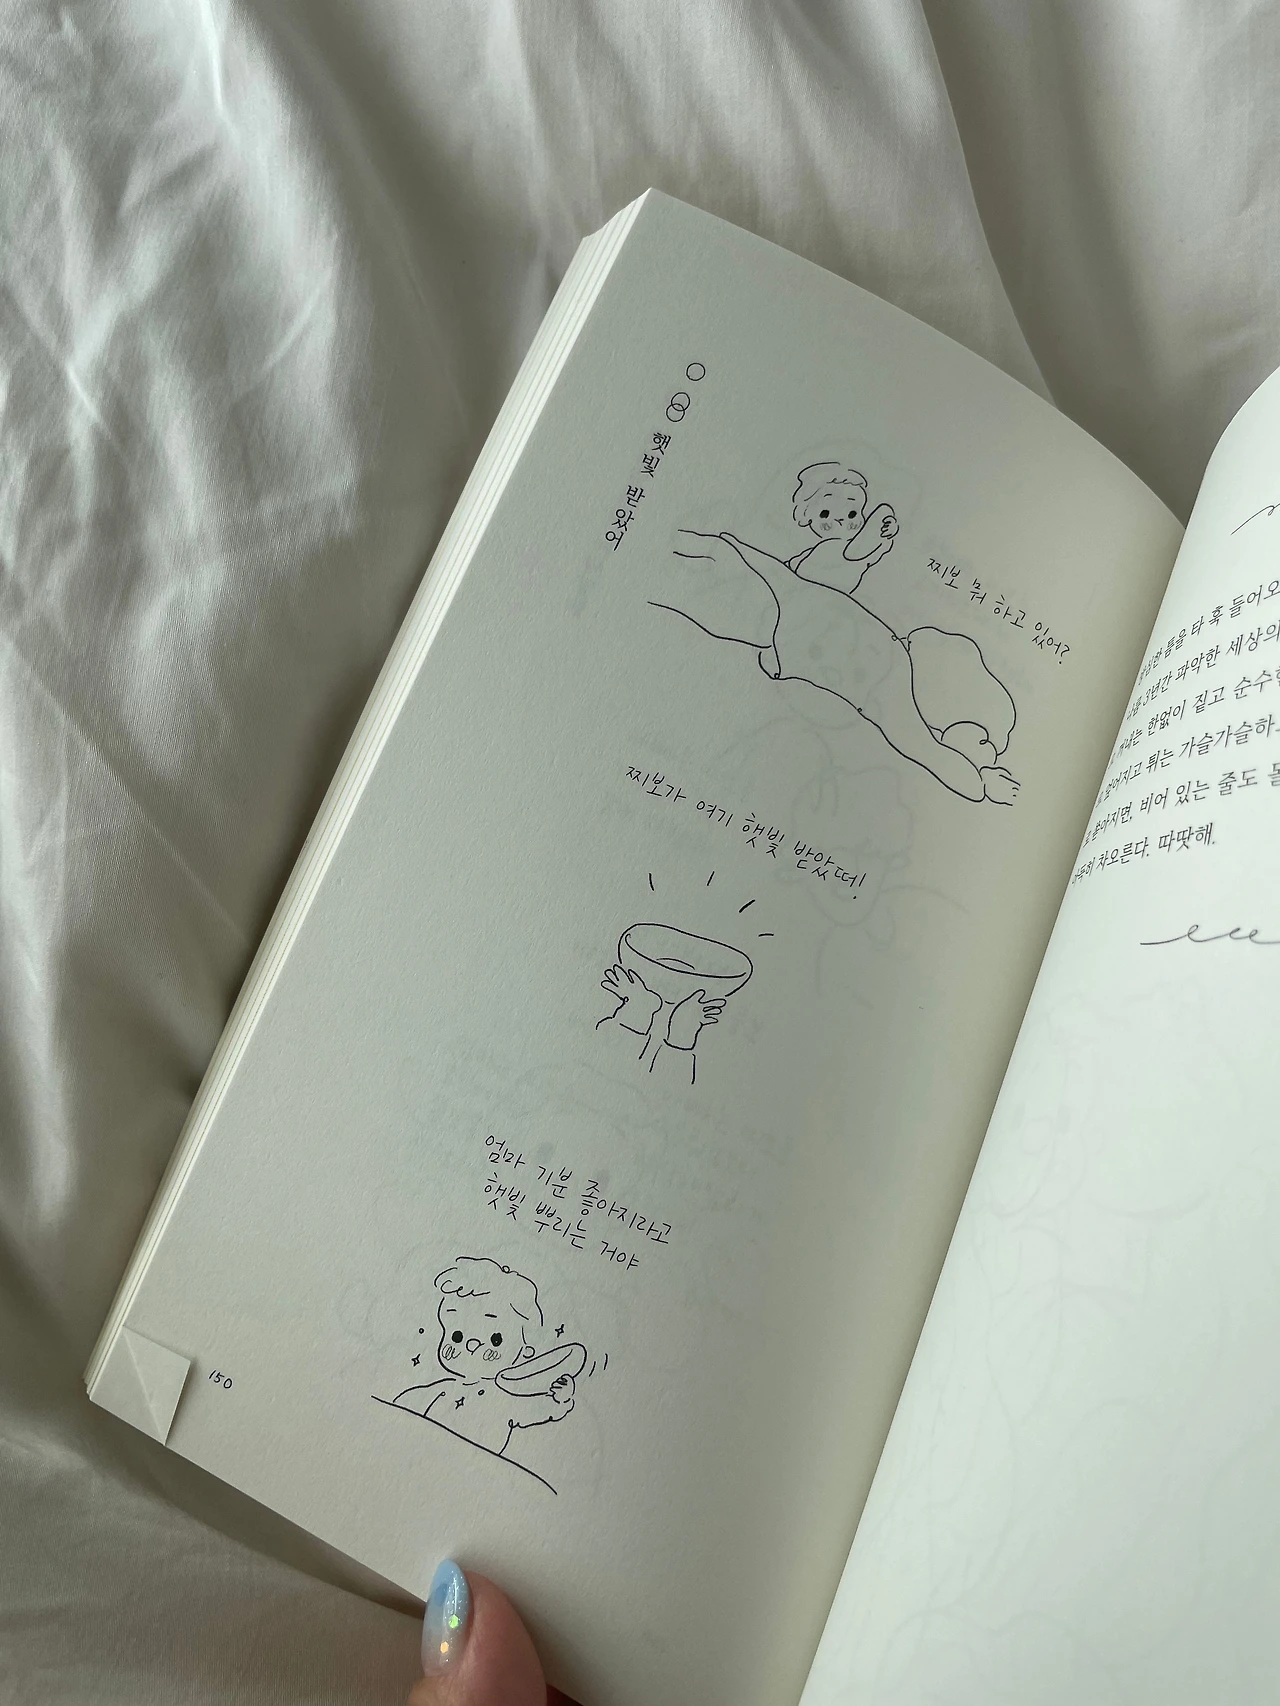 햇빛 받았어
찌보 뭐 하고 있어?
찌보가 여기 햇빛 받았떠!
엄마 기분 좋아지라고
햇빛 뿌리는 거야
150
틈을 타 훅 들어오
3년간 파악한 세상의
한없이 짙고 순수한
튀는 가슬가슬하
비어 있는 줄도 몰
차오른다. 따땃해.